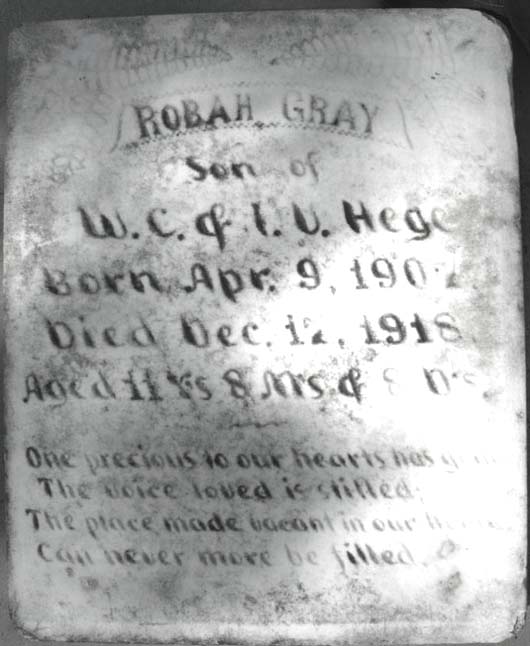 ROBAH GRAY
Son of
W. C. & I. V. Hege
Born Apr. 9, 1907
Died Dec. 12, 1918.
Aged 11 Ys 8 Ms & Ds.
One precious to our hearts has
The voice loved is stilled;
The place made vacant in our
Can never more be filled.